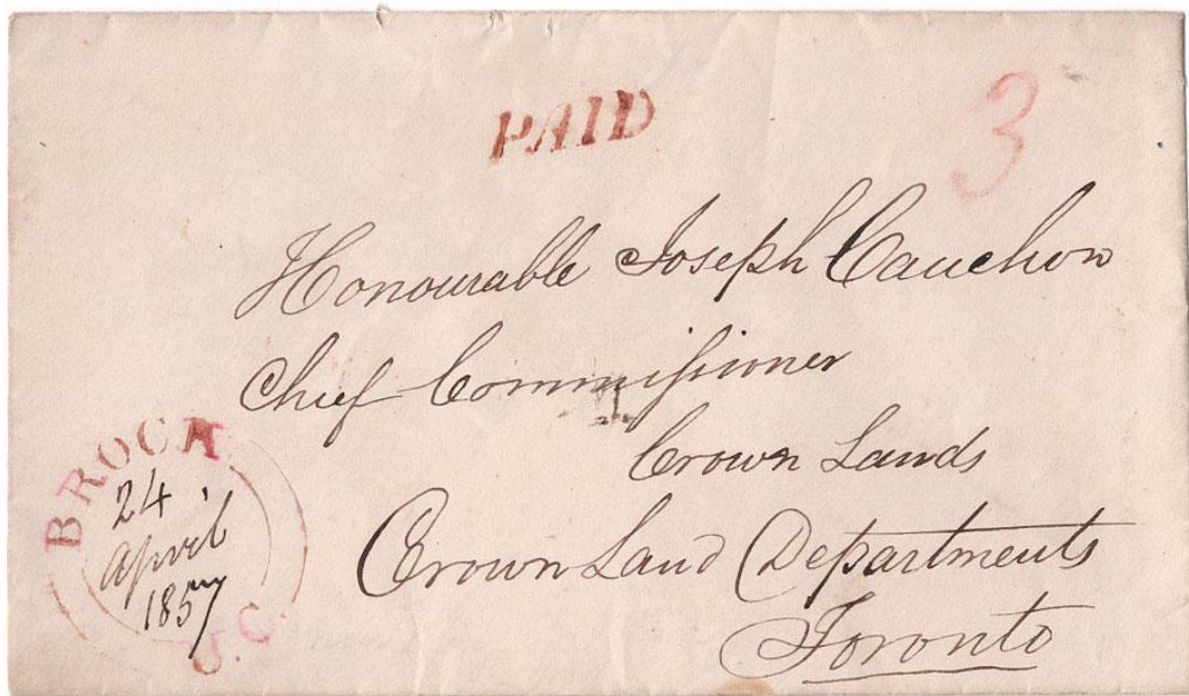 PAID
3
Honourable Joseph Cauchon
Chief Commissioner
Crown Lands
Crown Land Departments
Toronto
BROCK
24
April
1857
U.C.